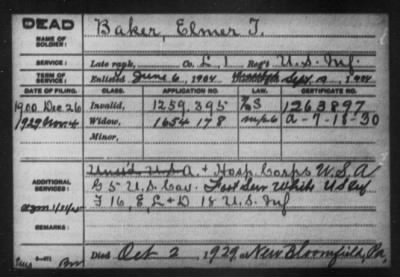 DEAD
NAME OF SOLDIER: Baker, Elmer T.
SERVICE: Late rank, Co. L, 1 Reg't U.S. Inf.
TERM OF SERVICE: Enlisted June 6, 1904 Sept. 1904
DATE OF FILING. CLASS. APPLICATION NO. LAW. CERTIFICATE NO.
1900 Dec 26 Invalid, 1259.395 1263897
1929 Nov 4 Widow, 1654178 a-7-18-30
Minor,
ADDITIONAL SERVICES: U.S.A. + Hosp Corps U.S.A
G 5 U.S. Cav. U.S. Cav
F 16, E, L + D 18 U.S. Inf
REMARKS:
Died Oct 2, 1929 at New Bloomfield, Pa.